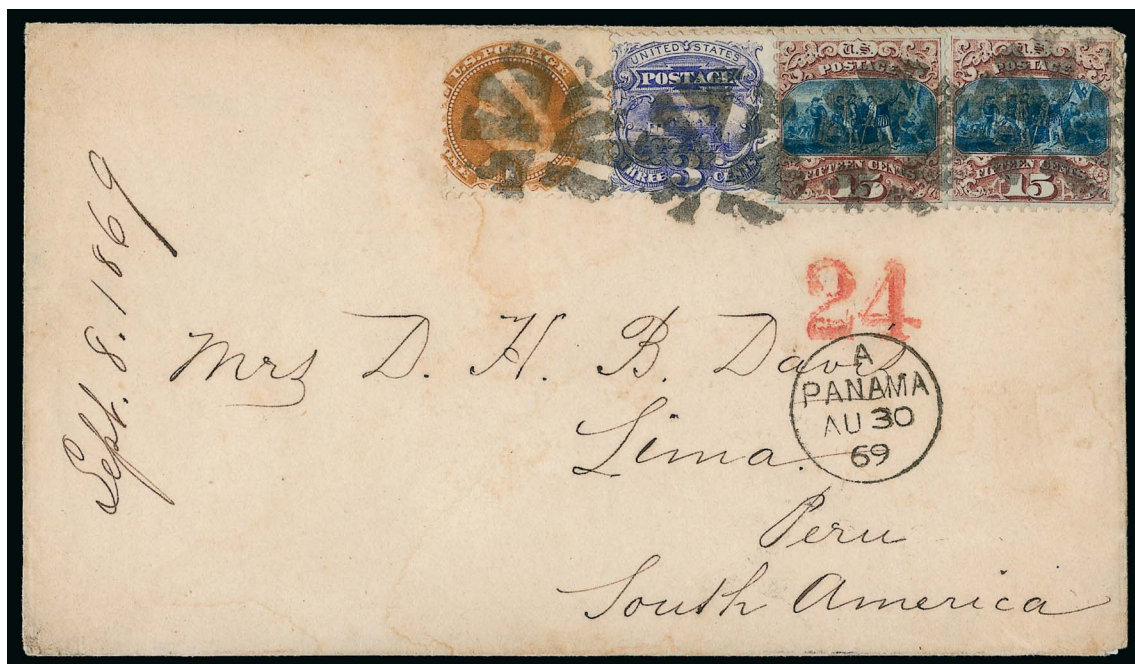 U.S. POSTAGE
UNITED STATES
POSTAGE
THREE 3 CENTS
U.S.
POSTAGE
FIFTEEN CENTS
15
U.S.
POSTAGE
FIFTEEN CENTS
15
Sept. 8. 1869
24
A
PANAMA
AU 30
69
Mrs D. H. B. Davis
Lima.
Peru
South America